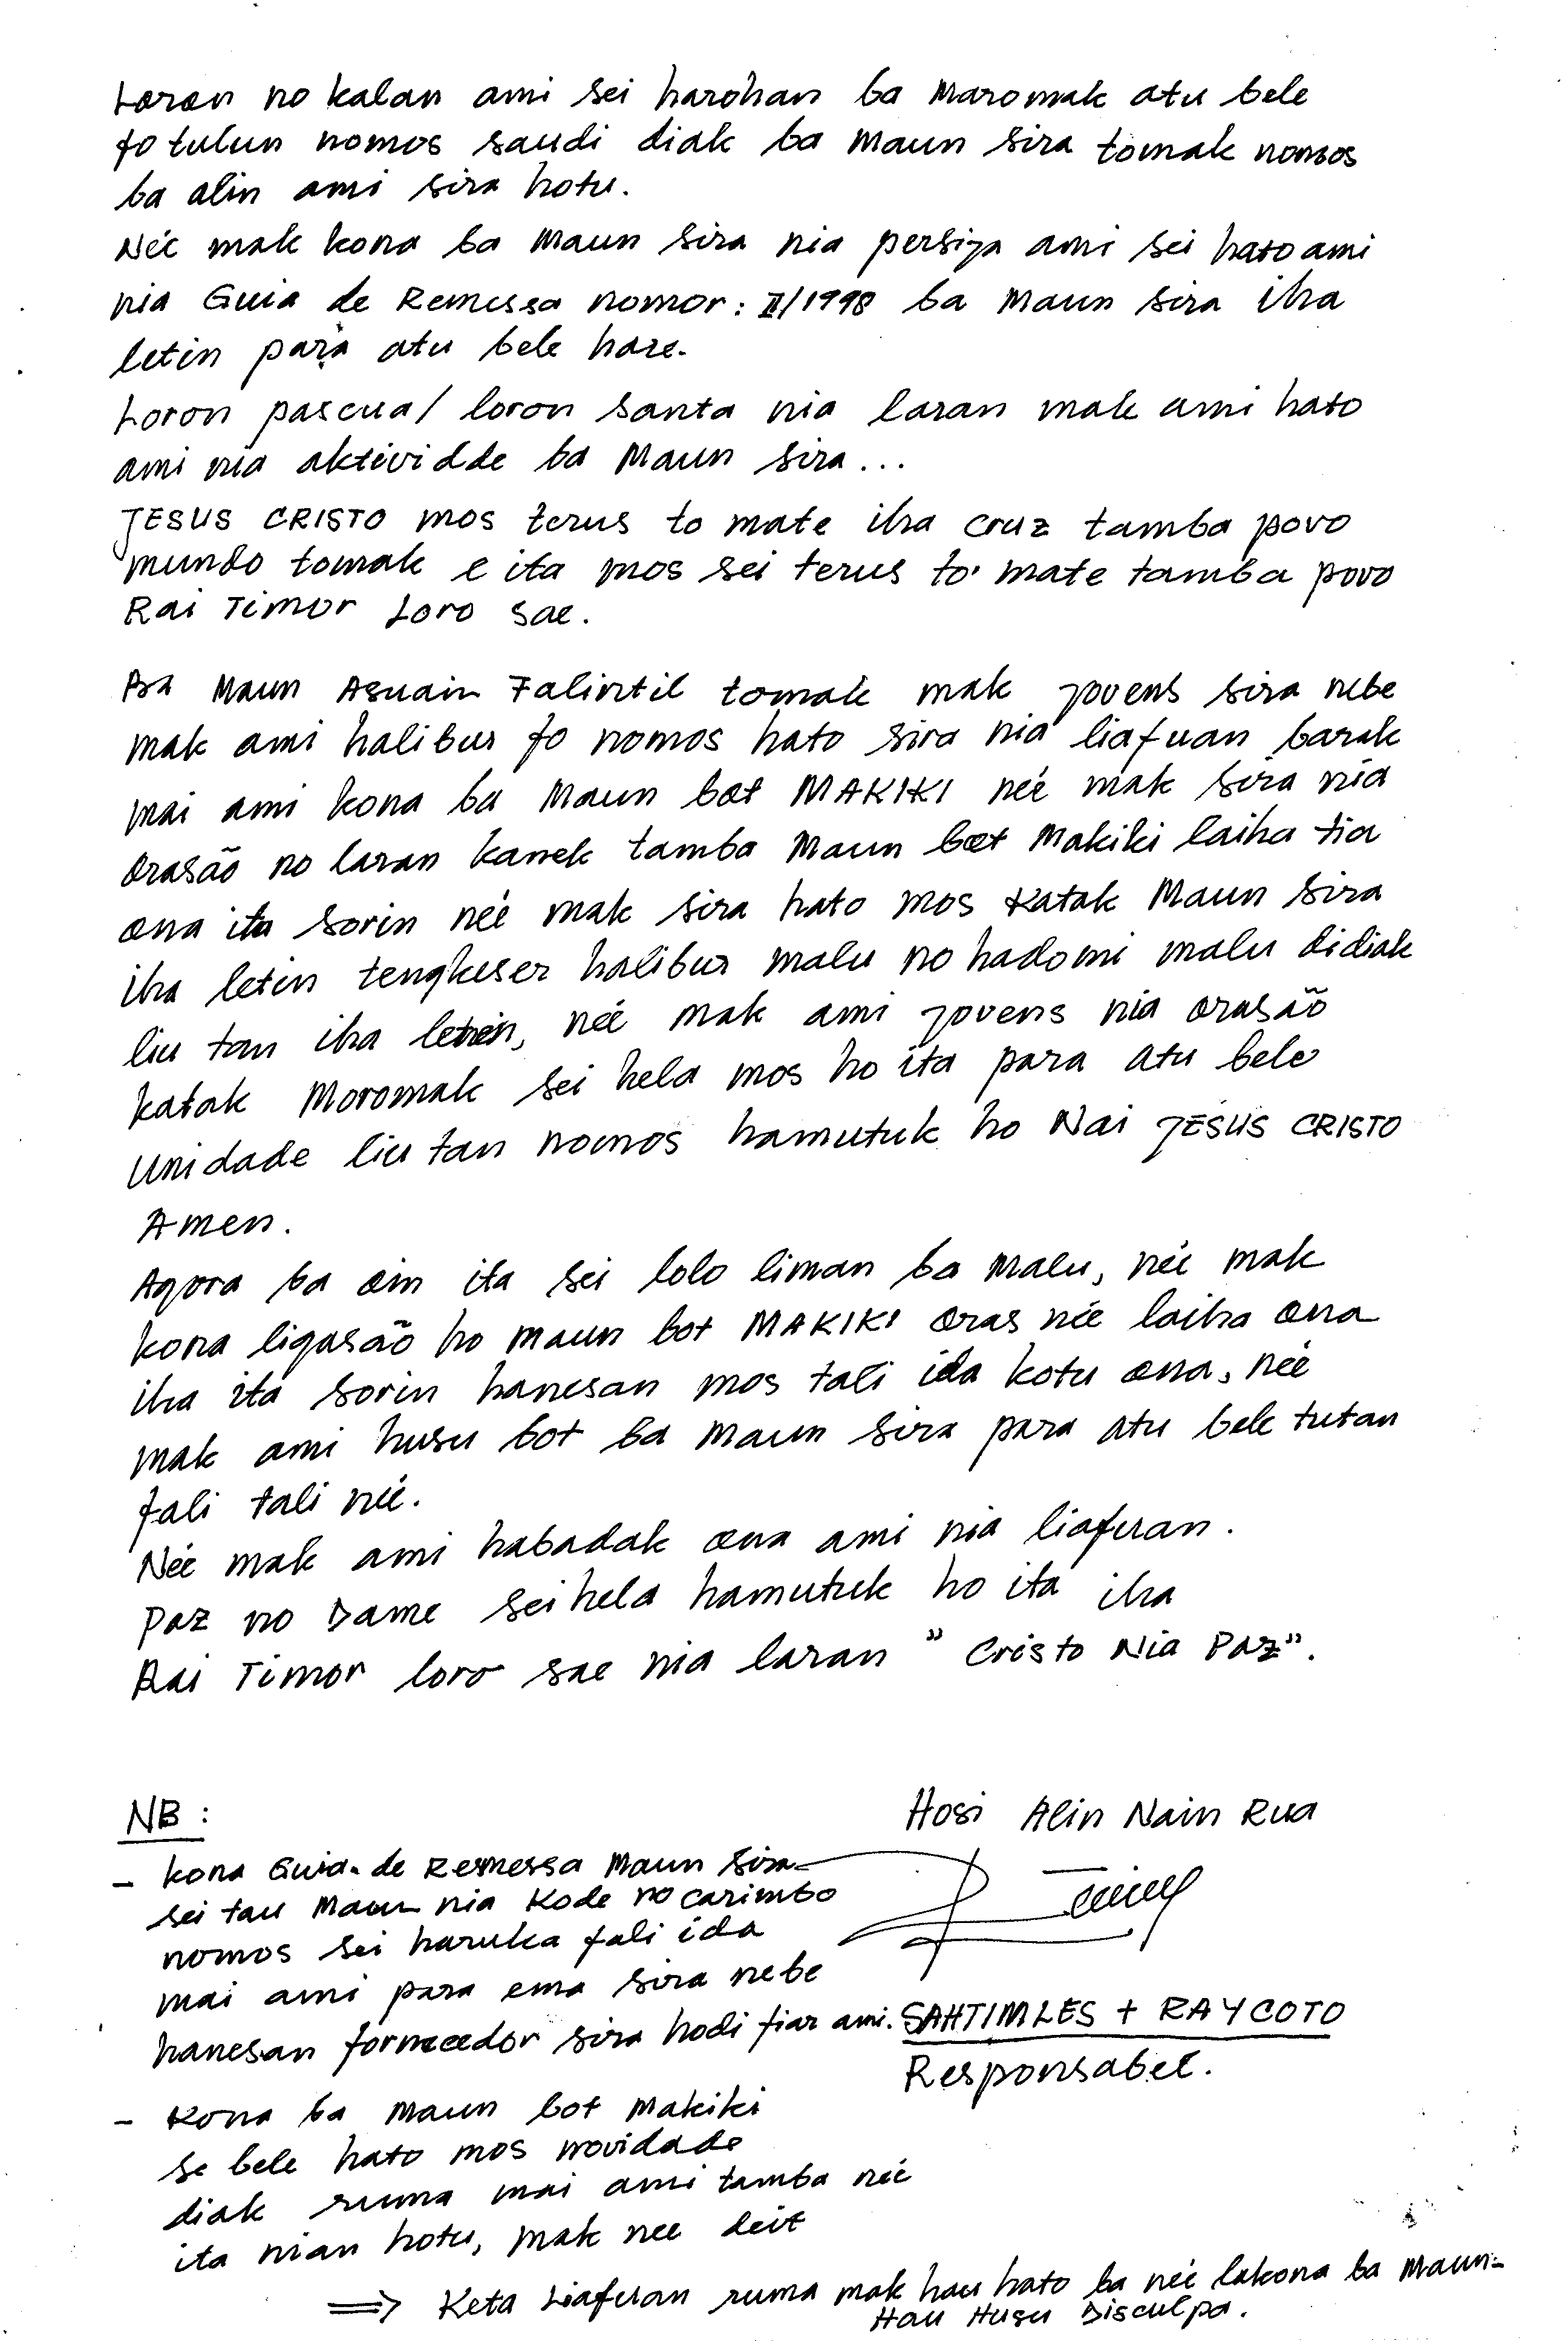 Loron no kalan ami sei harohan ba Maromak atu bele
fo tulun nomos saudi diak ba Maun sira tomak nomos
ba alin ami sira hotu.
Neé mak kona ba Maun sira nia persiza ami sei hato ami
nia Guia de Remessa nomor: II/1998 ba Maun sira iha
letin para atu bele hare.
Loron pascua/ loron santa nia laran mak ami hato
ami nia aktividde ba Maun sira...
JESUS CRISTO mos terus to mate iha cruz tamba povo
mundo tomak e ita mos sei terus to' mate tamba povo
Rai Timor Loro sae.
Ba Maun Asuain Falintil tomak mak jovens sira nebe
mak ami halibur fo nomos hato sira nia liafuan barak
mai ami kona ba Maun bot MAKIKI neé mak sira nia
orasão no laran kanek tamba Maun bot Makiki laiha tia
ona ita sorin neé mak sira hato mos katak Maun sira
iha letin tengkeser halibur malu no hadomi malu didiak
liu tan iha letein, neé mak ami jovens nia orasão
katak Moromak sei hela mos ho ita para atu bele
unidade liu tan nomos hamutuk ho Nai JESUS CRISTO
Amen.
Agora ba oin ita sei lolo liman ba malu, neé mak
kona ligasão ho maun bot MAKIKI oras neé laiha ona
iha ita sorin hanesan mos tali ida kotu ona, neé
mak ami husu bot ba Maun sira para atu bele tutan
fali tali neé.
Neé mak ami habadak ona ami nia liafuan.
Paz no Dame sei hela hamutuk ho ita iha
Rai Timor loro sae nia laran " Cristo Nia Paz".
Hosi Alin Nain Rua
NB :
- kona Guia de Remessa Maun sira
sei tau Maun nia kode no carimbo
nomos sei haruka fali ida
mai ami para ema sira nebe
hanesan fornecedor sira hodi fiar ami.
SAHTIMLES + RAYCOTO
Responsabel.
- Kona ba Maun bot Makiki
se bele hato mos novidade
diak ruma mai ami tamba neé
ita nian hotu, mak nee deit
⇒ Keta Liafuan ruma mak hau hato ba neé lakona ba Maun-
Hau Husu Disculpa.